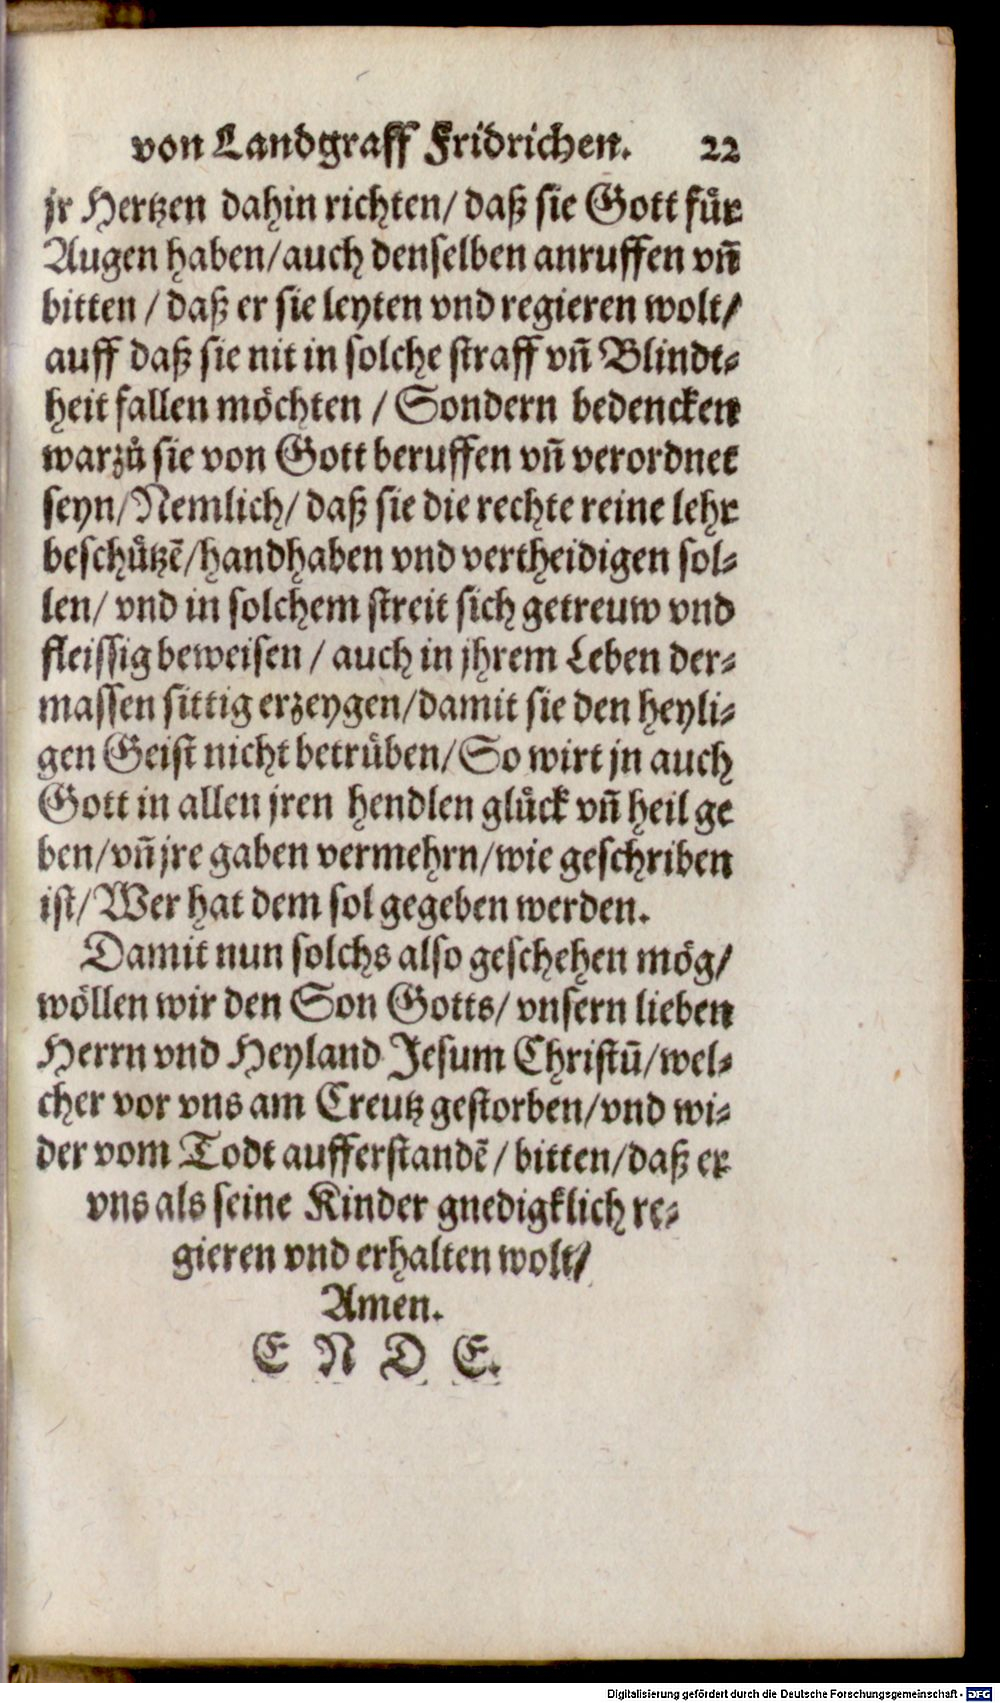 von Landgraff Fridrichen. 22
jr Hertzen dahin richten/ daß sie Gott fuͤr
Augen haben/auch denselben anruffen vñ
bitten / daß er sie leyten vnd regieren wolt/
auff daß sie nit in solche straff vñ Blindt⸗
heit fallen moͤchten / Sondern bedencken
warzů sie von Gott beruffen vñ verordnet
seyn/Nemlich/ daß sie die rechte reine lehr
beschuͤtzẽ/handhaben vnd vertheidigen sol⸗
len/ vnd in solchem streit sich getreuw vnd
fleissig beweisen / auch in jhrem Leben der⸗
massen sittig erzeygen/damit sie den heyli⸗
gen Geist nicht betruͤben/So wirt jn auch
Gott in allen jren hendlen gluͤck vñ heil ge
ben/vñ jre gaben vermehrn/wie geschriben
ist/Wer hat dem sol gegeben werden.
Damit nun solchs also geschehen moͤg/
woͤllen wir den Son Gotts/ vnsern lieben
Herrn vnd Heyland Jesum Christũ/wel⸗
cher vor vns am Creutz gestorben/vnd wi⸗
der vom Todt aufferstandẽ / bitten/daß er
vns als seine Kinder gnedigklich re⸗
gieren vnd erhalten wolt/
Amen.
E N D E.
Digitalisierung gefördert durch die Deutsche Forschungsgemeinschaft - DFG